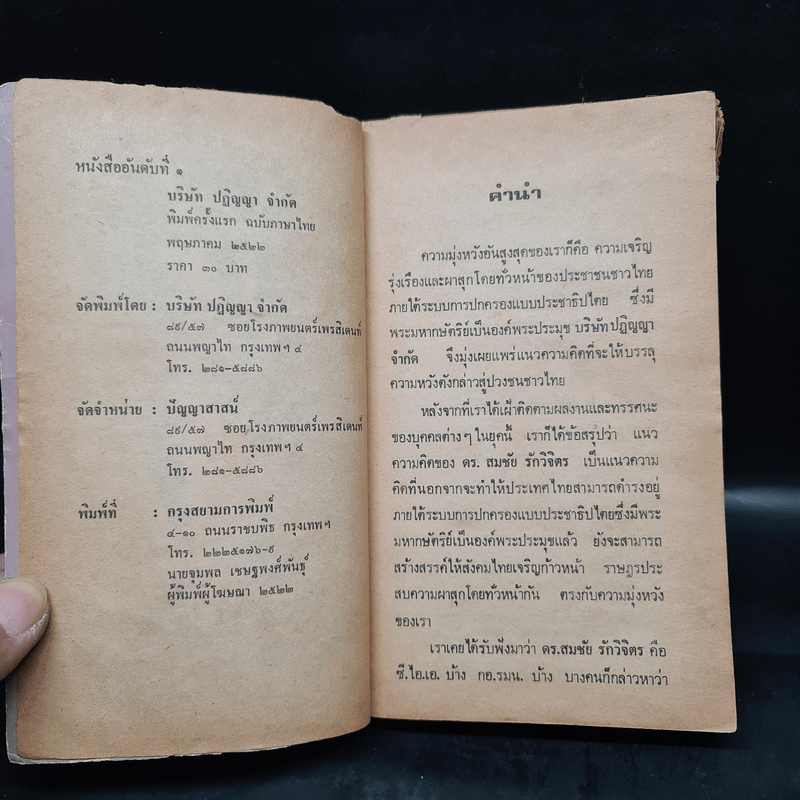 หนังสืออันดับที่ ๑
บริษัท ปฏิญญา จำกัด
พิมพ์ครั้งแรก ฉบับภาษาไทย
พฤษภาคม ๒๕๒๒
ราคา ๓๐ บาท
จัดพิมพ์โดย : บริษัท ปฏิญญา จำกัด
๘๙/๕๗ ซอยโรงภาพยนตร์เพรสิเดนท์
ถนนพญาไท กรุงเทพฯ ๔
โทร. ๒๘๑-๕๘๘๖
จัดจำหน่าย : ปัญญาสาสน์
๘๙/๕๗ ซอยโรงภาพยนตร์เพรสิเดนท์
ถนนพญาไท กรุงเทพฯ ๔
โทร. ๒๘๑-๕๘๘๖
พิมพ์ที่ : กรุงสยามการพิมพ์
๔-๑๐ ถนนราชบพิธ กรุงเทพฯ
โทร. ๒๒๒๕๑๗๖-๙
นายจุมพล เชษฐพงศ์พันธุ์
ผู้พิมพ์ผู้โฆษณา ๒๕๒๒
คำนำ
ความมุ่งหวังอันสูงสุดของเราก็คือ ความเจริญ
รุ่งเรืองและผาสุกโดยทั่วหน้าของประชาชนชาวไทย
ภายใต้ระบบการปกครองแบบประชาธิปไตย ซึ่งมี
พระมหากษัตริย์เป็นองค์พระประมุข บริษัท ปฏิญญา
จำกัด จึงมุ่งเผยแพร่แนวความคิดที่จะให้บรรลุ
ความหวังดังกล่าวสู่ปวงชนชาวไทย
หลังจากที่เราได้เฝ้าติดตามผลงานและทรรศนะ
ของบุคคลต่างๆ ในยุคนี้ เราก็ได้ข้อสรุปว่า แนว
ความคิดของ ดร. สมชัย รักวิจิตร เป็นแนวความ
คิดที่นอกจากจะทำให้ประเทศไทยสามารถดำรงอยู่
ภายใต้ระบบการปกครองแบบประชาธิปไตยซึ่งมีพระ
มหากษัตริย์เป็นองค์พระประมุขแล้ว ยังจะสามารถ
สร้างสรรค์ให้สังคมไทยเจริญก้าวหน้า ราษฎรประ
สบความผาสุกโดยทั่วหน้ากัน ตรงกับความมุ่งหวัง
ของเรา
เราเคยได้รับฟังมาว่า ดร.สมชัย รักวิจิตร คือ
ซี.ไอ.เอ. บ้าง กอ.รมน. บ้าง บางคนก็กล่าวหาว่า